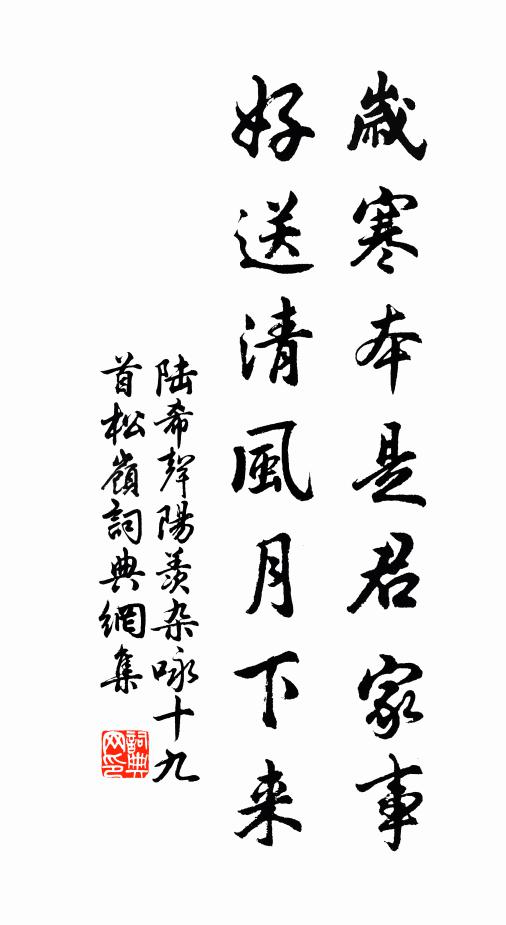 歲寒本是君家事
好送清風月下来
陸希聲陽羨杂咏十九
首松嶺詞典網集
詞典网印